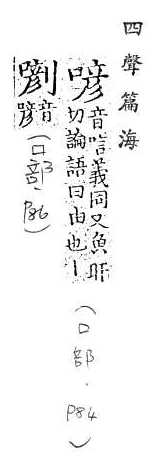 四聲篇海
喭 音唁義同又魚旰
切論語曰由也丨
(口部.P84)
音喭
(口部.P86)